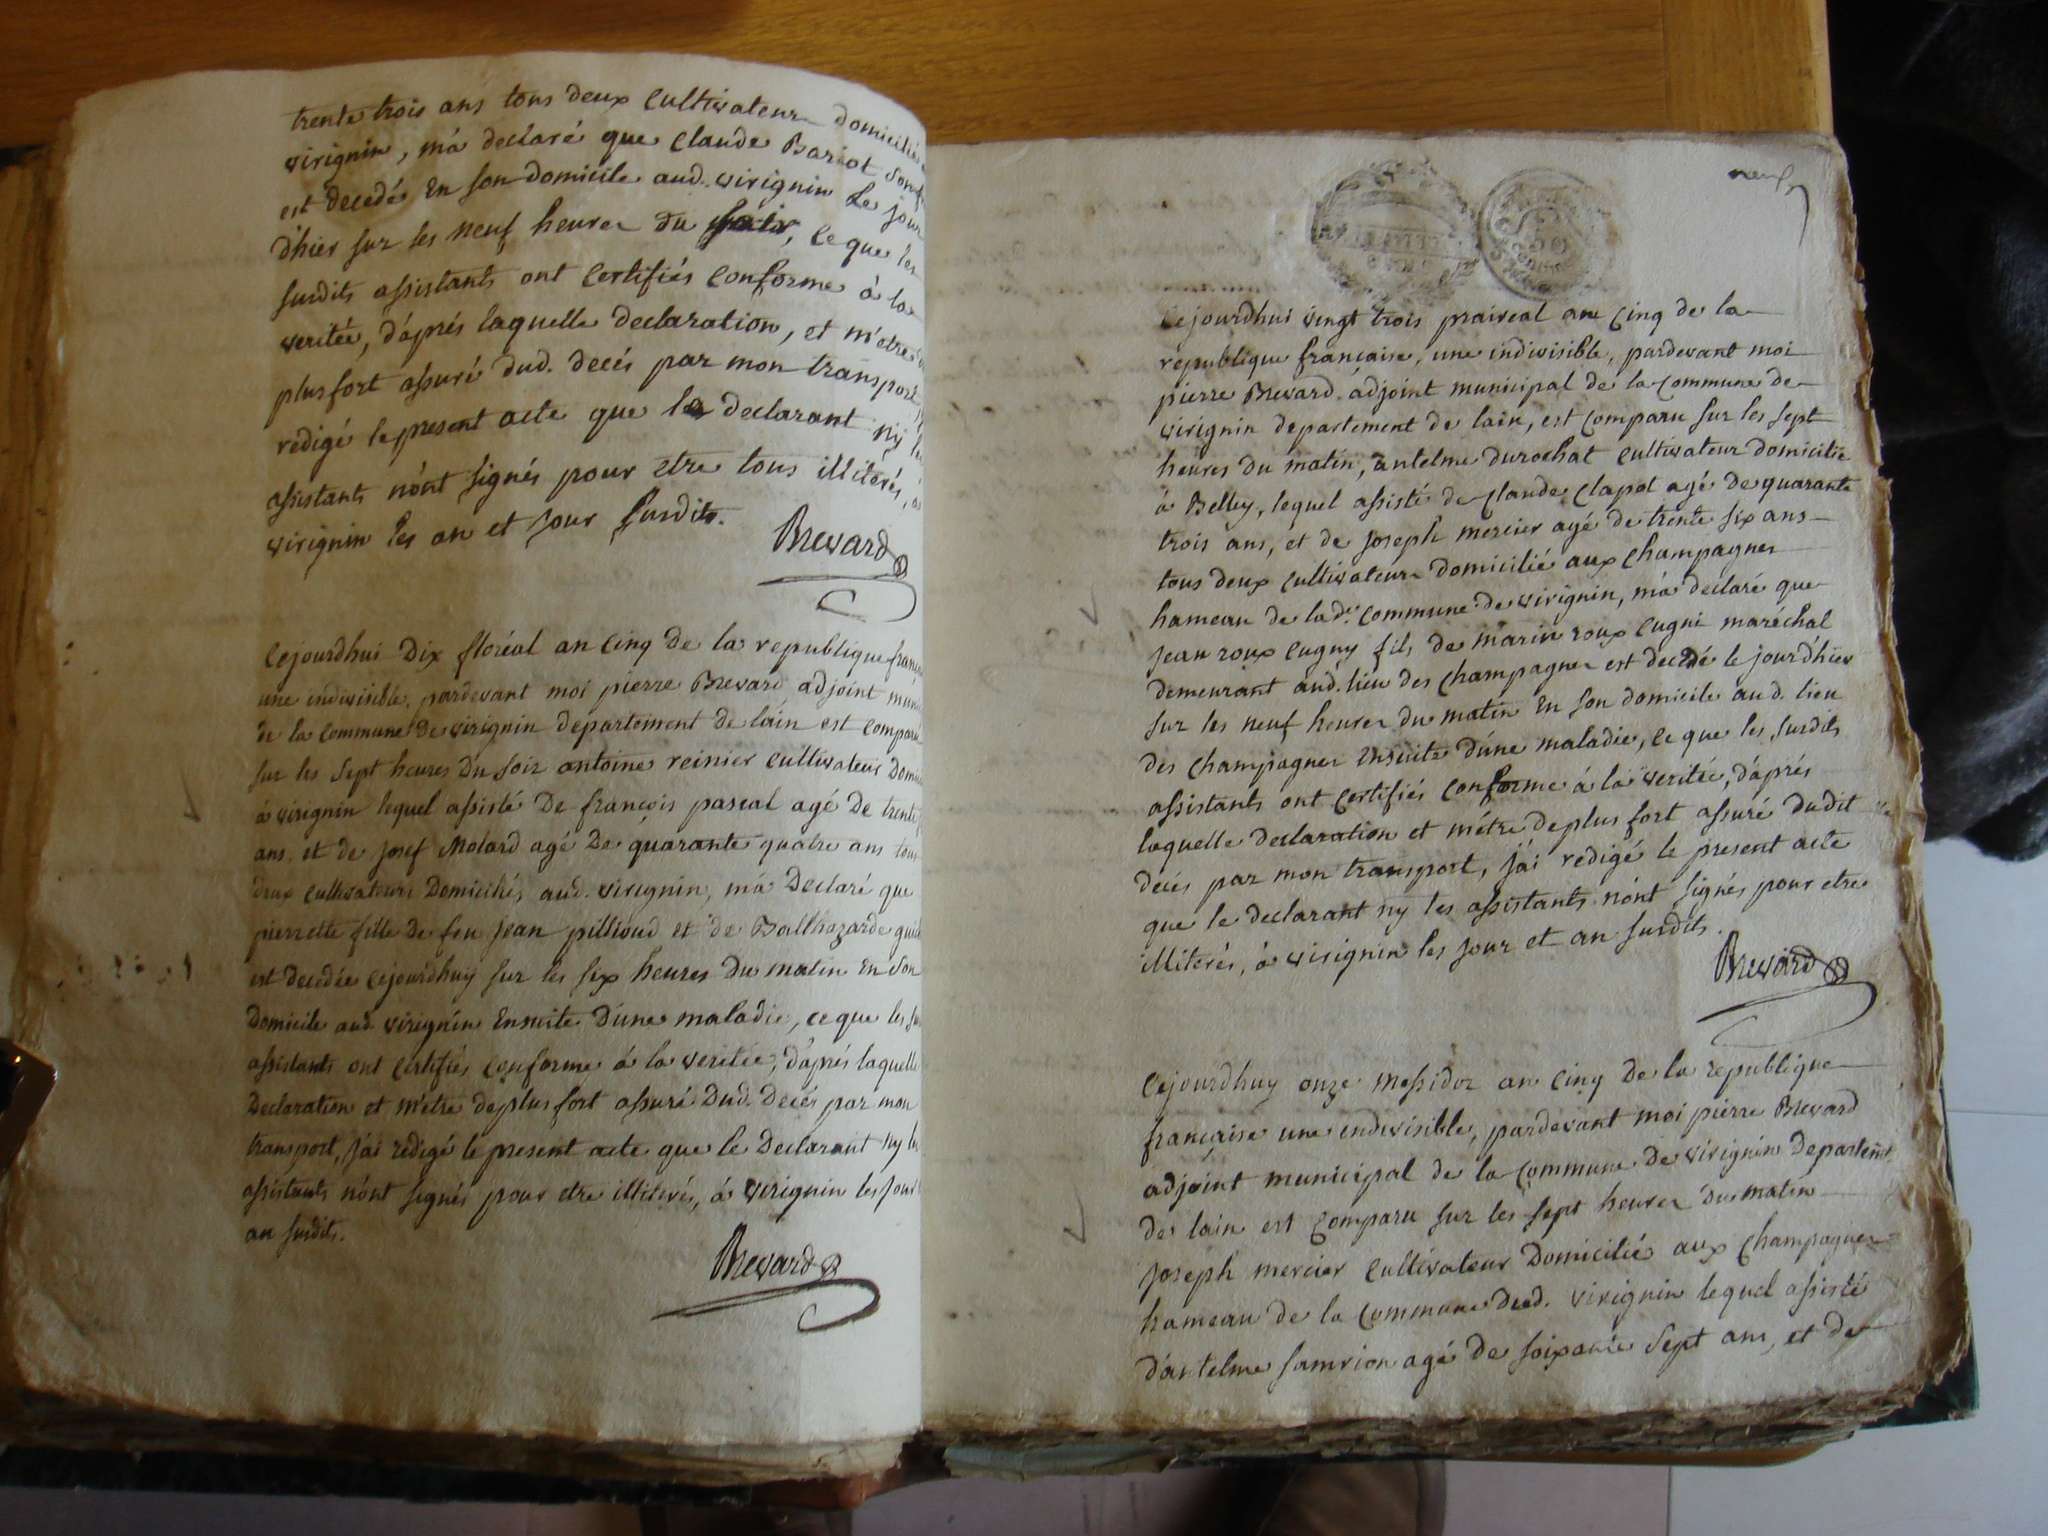 trente trois ans tous deux cultivateur domiciliés
virignin, m'a declaré que claude Bariot son
est decedé en son domicile aud. virignin le jour
d'hier sur les neuf heures du soir, ce que les
susdits assistants ont certifiés conforme à la
veritée, d'aprés laquelle declaration, et m'etre
plus fort assuré dud. decés par mon transport
redigé le present acte que le declarant ny les
assistants n'ont signés pour etre tous illiterés, à
virignin les an et jour susdits.
Brevard
Cejourdhui dix floréal an cinq de la republique
une indivisible, pardevant moi pierre Brevard adjoint
de la commune de virignin departement de lain est comparu
sur les sept heures du soir antoine reinier cultivateur
à virignin lequel assisté de françois pascal agé de trente
ans. et de josef Molard agé de quarante quatre ans tous
deux cultivateurs domiciliés aud. virignin, m'a declaré que
pierrette fille de feu jean pillioud et de Balthazarde
est decedée cejourdhuy sur les six heures du matin en son
domicile aud virignin ensuite d'une maladie, ce que les
assistants ont certifiés conforme à la veritée, d'aprés laquelle
declaration et m'etre de plus fort assuré dud. decés par mon
transport, j'ai redigé le present acte que le declarant ny les
assistants n'ont signés pour etre illiterés, à virignin les jour
an susdits.
Brevard
neuf
Cejourdhui vingt trois prairéal an cinq de la
republique française, une indivisible, pardevant moi
pierre Brevard adjoint municipal de la commune de
virignin departement de lain, est comparu sur les sept
heures du matin, antelme durochat cultivateur domicilié
à Belley, lequel assisté de claude clapot agé de quarante
trois ans, et de joseph mercier agé de trente six ans
tous deux cultivateur domicilié aux champagnes
hameau de lad. commune de virignin, m'a declaré que
jean roux cugny fils de marin roux cugni maréchal
demeurant aud. lieu des champagnes est decedé le jourd'hier
sur les neuf heures du matin en son domicile aud. lieu
des champagnes ensuite d'une maladie, ce que les susdits
assistants ont certifiés conforme à la veritée, d'aprés
laquelle declaration et m'étre de plus fort assuré dudit
decés par mon transport, j'ai redigé le present acte
que le declarant ny les assistants n'ont signés pour etre
illiterés, à virignin les jour et an susdits.
Brevard
Cejourdhuy onze messidor an cinq de la republique
française une indivisible, pardevant moi pierre Brevard
adjoint municipal de la commune de virignin departemt
de lain est comparu sur les sept heures du matin
joseph mercier cultivateur domicilié aux champagnes
hameau de la commune dud. virignin lequel assisté
d'antelme samrion agé de soixante sept ans, et de